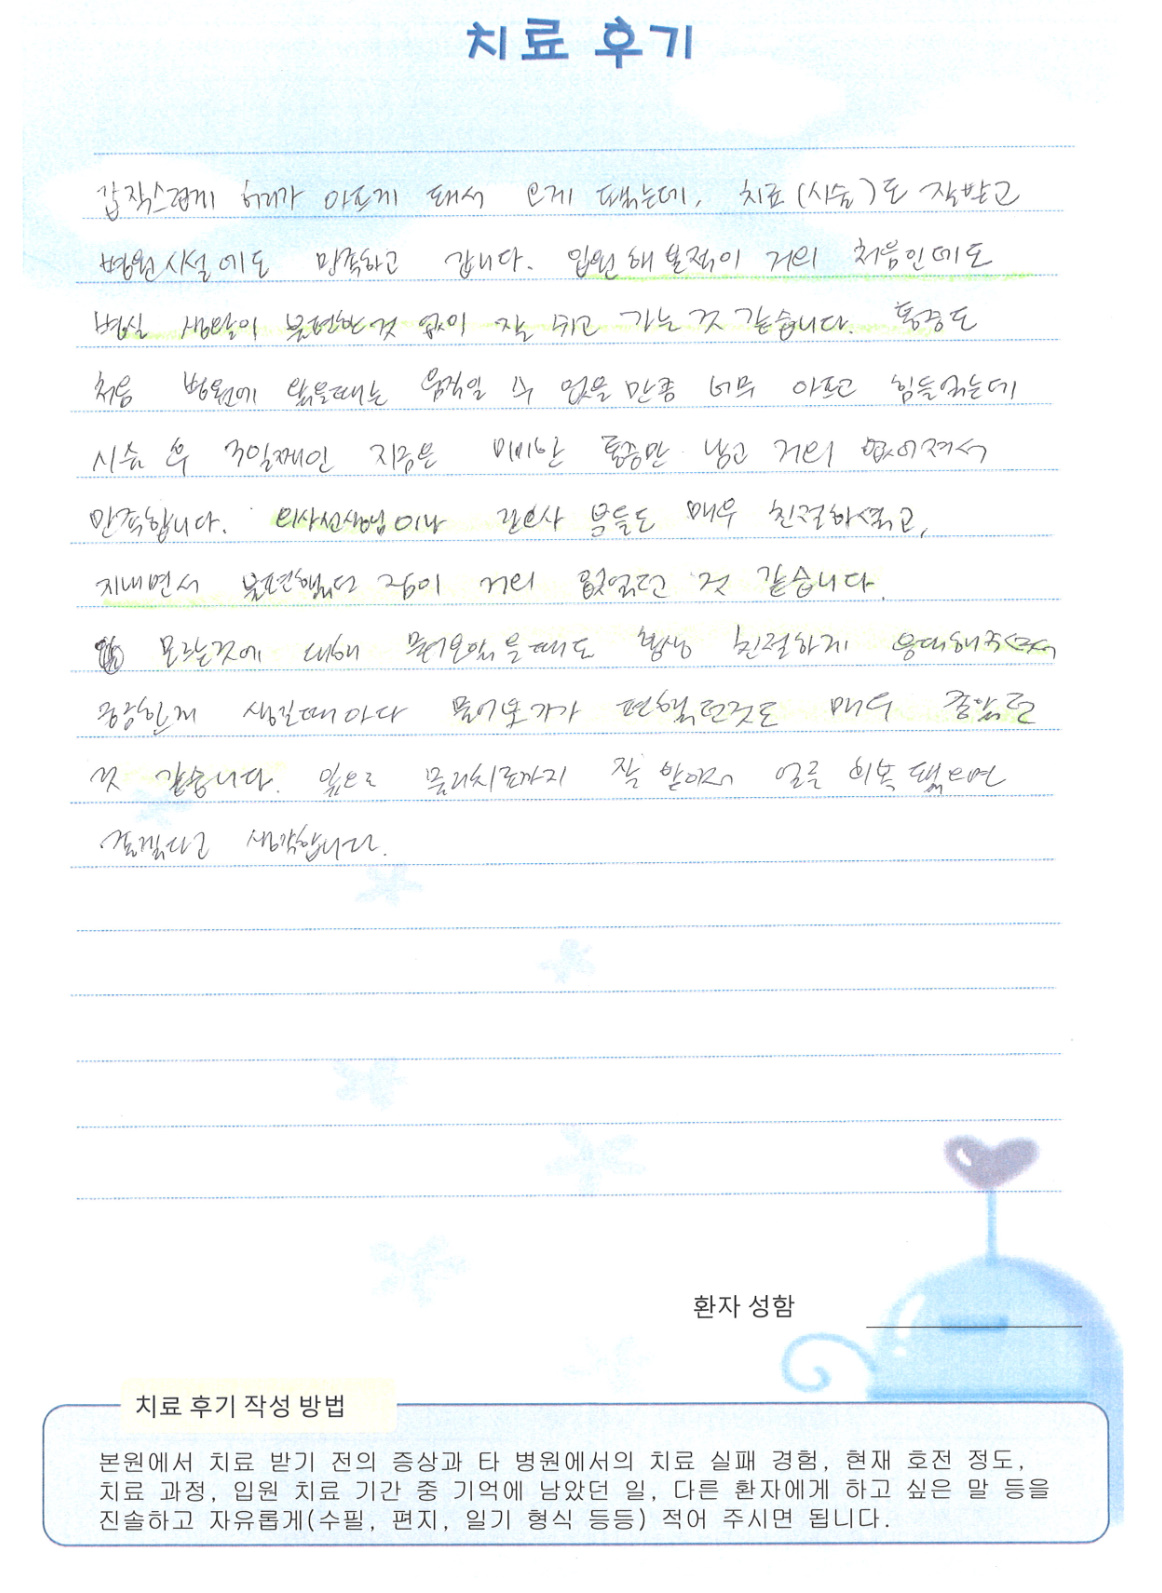 치료 후기
갑작스럽게 허리가 아프게 돼서 오게 됐는데, 치료(시술)도 잘받고
병원시설에도 만족하고 갑니다. 입원해 본적이 거의 처음인데도
병실 생활이 불편한것 없이 잘 쉬고 가는 것 같습니다. 통증도
처음 병원에 왔을때는 움직일 수 없을 만큼 너무 아프고 힘들었는데
시술 후 3일째인 지금은 미미한 통증만 남고 거의 없어져서
만족합니다. 의사선생님이나 간호사 분들도 매우 친절하셨고,
지내면서 불편했던 점이 거의 없었던 것 같습니다.
모르는것에 대해 물어보았을때도 항상 친절하게 응대해주셔서
궁금한게 생길때마다 물어보기가 편했던것도 매우 좋았던
것 같습니다. 앞으로 물리치료까지 잘 받아서 얼른 회복 됐으면
좋겠다고 생각합니다.
환자 성함
치료 후기 작성 방법
본원에서 치료 받기 전의 증상과 타 병원에서의 치료 실패 경험, 현재 호전 정도,
치료 과정, 입원 치료 기간 중 기억에 남았던 일, 다른 환자에게 하고 싶은 말 등을
진솔하고 자유롭게(수필, 편지, 일기 형식 등등) 적어 주시면 됩니다.